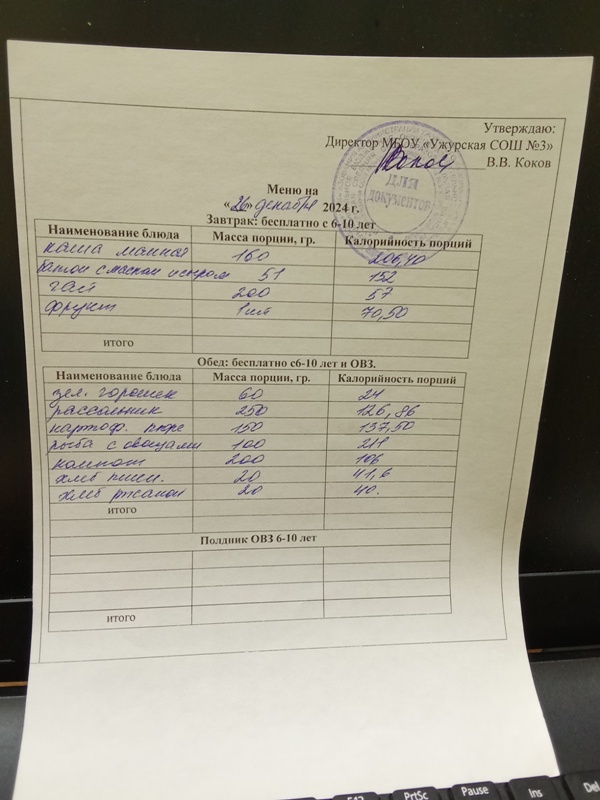 Утверждаю:
Директор МБОУ «Ужурская СОШ №3»
В.В. Коков
ДЛЯ
ДОКУМЕНТОВ
Меню на
«26» декабря 2024 г.
Завтрак: бесплатно с 6-10 лет
Наименование блюда Масса порции, гр. Калорийность порций
каша манная 160 206,40
батон с маслом и сыром 51 152
чай 200 57
фрукт 1шт 70,50
итого
Обед: бесплатно с6-10 лет и ОВЗ.
Наименование блюда Масса порции, гр. Калорийность порций
зел. горошек 60 24
рассольник 250 126,86
картоф. пюре 150 137,50
рыба с овощами 100 211
компот 200 106
хлеб пшен. 20 41,6
хлеб ржаной 20 40.
итого
Полдник ОВЗ 6-10 лет
итого
F12 PrtSc Pause Ins Del